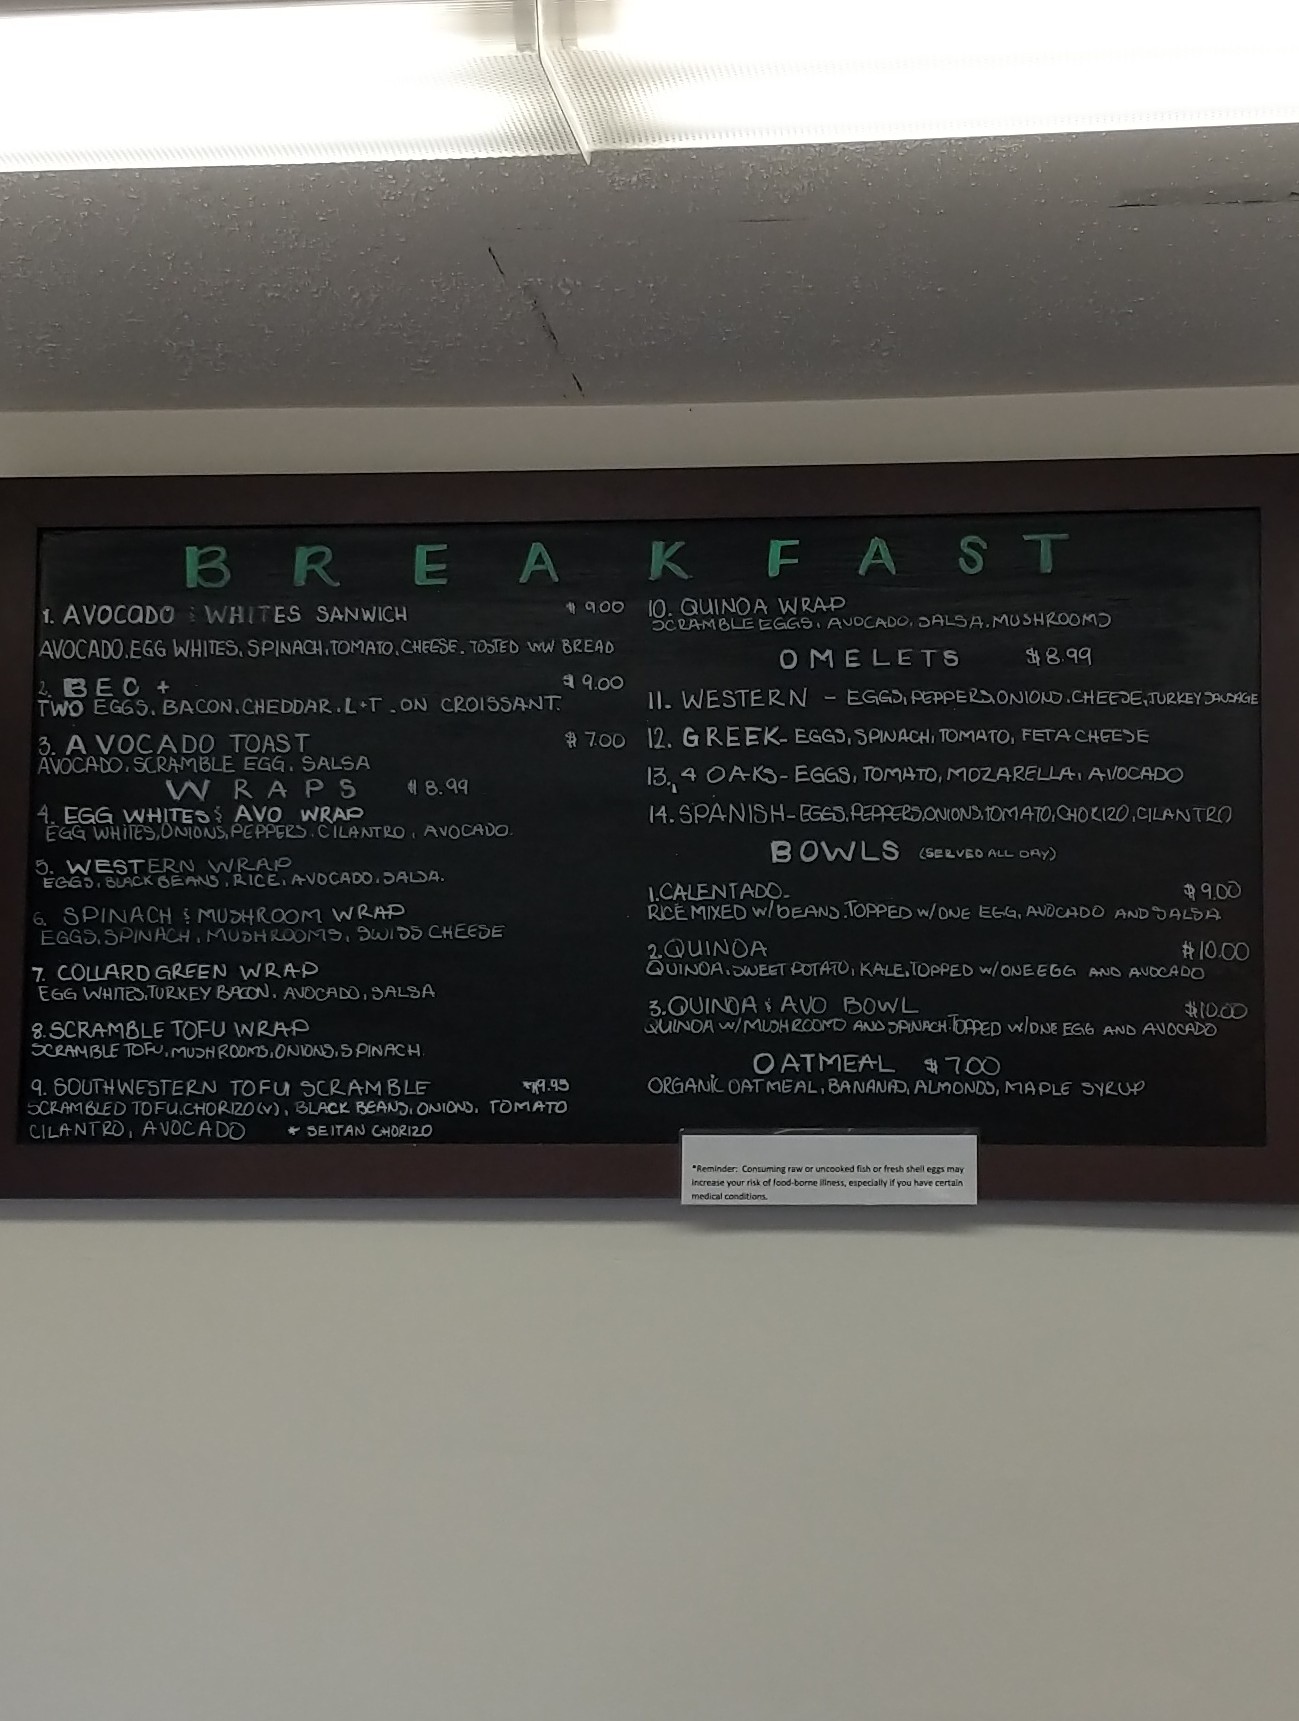 BREAKFAST
1. AVOCADO & WHITES SANWICH $ 9.00
AVOCADO, EGG WHITES, SPINACH, TOMATO, CHEESE. TOSTED WW BREAD
2. BEC + $ 9.00
TWO EGGS, BACON, CHEDDAR, L+T - ON CROISSANT.
3. AVOCADO TOAST $ 7.00
AVOCADO, SCRAMBLE EGG, SALSA
WRAPS $ 8.99
4. EGG WHITES & AVO WRAP
EGG WHITES, ONIONS, PEPPERS, CILANTRO, AVOCADO.
5. WESTERN WRAP
EGGS, BLACK BEANS, RICE, AVOCADO, SALSA.
6. SPINACH & MUSHROOM WRAP
EGGS, SPINACH, MUSHROOMS, SWISS CHEESE
7. COLLARD GREEN WRAP
EGG WHITES, TURKEY BACON, AVOCADO, SALSA
8. SCRAMBLE TOFU WRAP
SCRAMBLE TOFU, MUSHROOMS, ONIONS, SPINACH.
9. SOUTHWESTERN TOFU SCRAMBLE $9.95
SCRAMBLED TOFU, CHORIZO(V), BLACK BEANS, ONIONS, TOMATO
CILANTRO, AVOCADO * SEITAN CHORIZO
10. QUINOA WRAP
SCRAMBLE EGGS, AVOCADO, SALSA, MUSHROOMS
OMELETS $8.99
11. WESTERN - EGGS, PEPPERS, ONIONS, CHEESE, TURKEY SAUSAGE
12. GREEK- EGGS, SPINACH, TOMATO, FETA CHEESE
13. 4 OAKS- EGGS, TOMATO, MOZARELLA, AVOCADO
14. SPANISH- EGGS, PEPPERS, ONIONS, TOMATO, CHORIZO, CILANTRO
BOWLS (SERVED ALL DAY)
1. CALENTADO- $ 9.00
RICE MIXED W/BEANS. TOPPED W/ONE EGG, AVOCADO AND SALSA
2. QUINOA $10.00
QUINOA, SWEET POTATO, KALE, TOPPED W/ONE EGG AND AVOCADO
3. QUINOA & AVO BOWL $10.00
QUINOA W/MUSHROOMS AND SPINACH. TOPPED W/ONE EGG AND AVOCADO
OATMEAL $ 7.00
ORGANIC OATMEAL, BANANAS, ALMONDS, MAPLE SYRUP
*Reminder: Consuming raw or uncooked fish or fresh shell eggs may
increase your risk of food-borne illness, especially if you have certain
medical conditions.